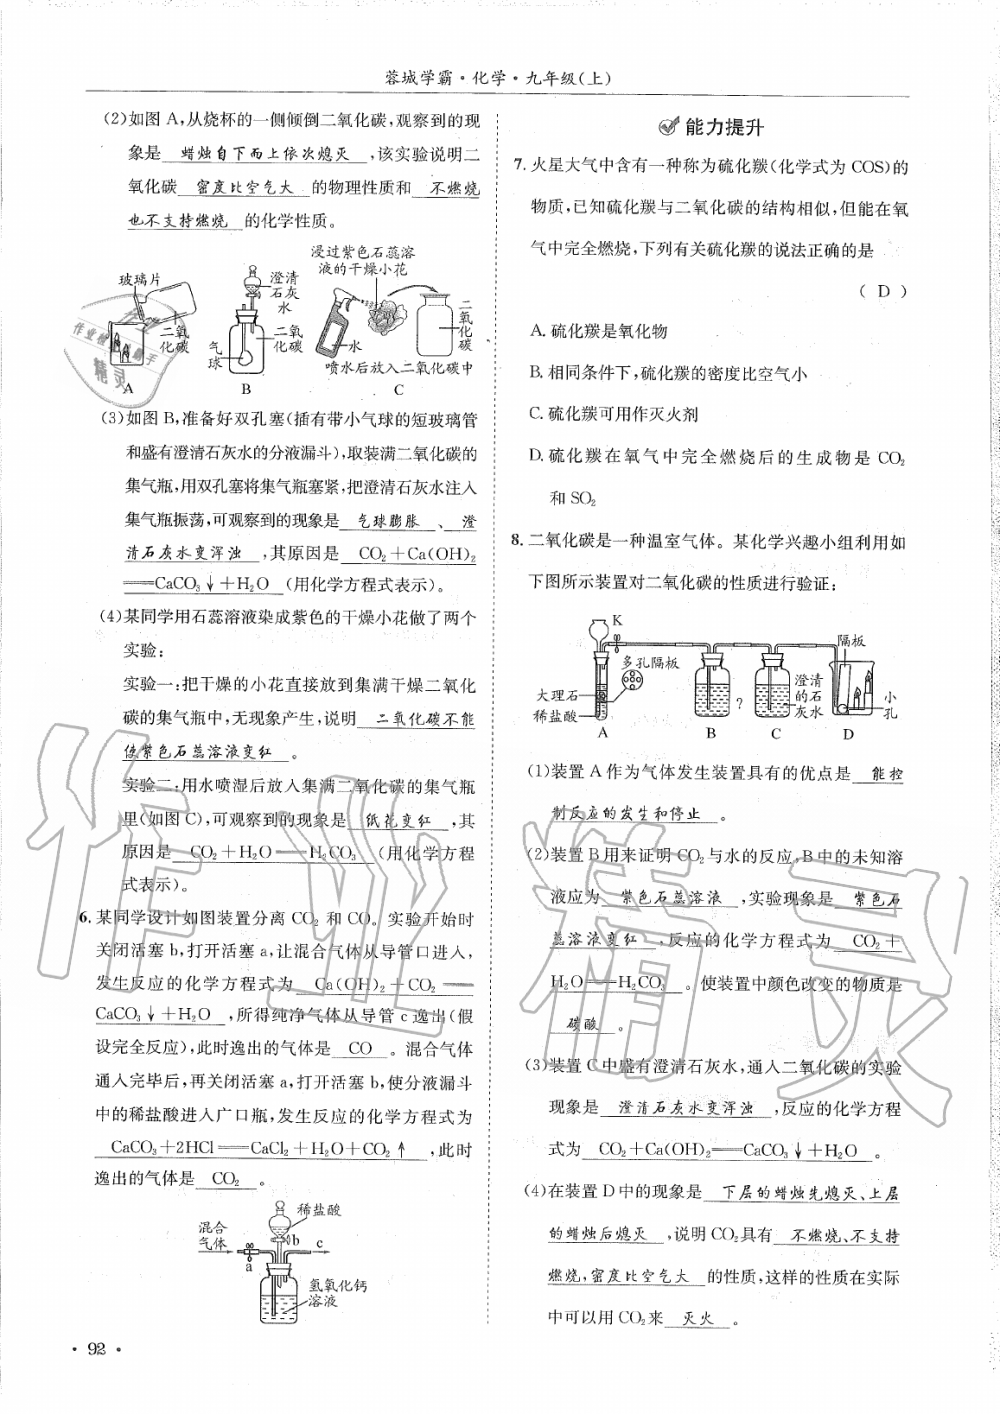 蓉城学霸·化学·九年级(上)
(2)如图A,从烧杯的一侧倾倒二氧化碳,观察到的现
象是 蜡烛自下而上依次熄灭 ,该实验说明二
氧化碳 密度比空气大 的物理性质和 不燃烧
也不支持燃烧 的化学性质。
玻璃片
二氧
化碳
A
澄清
石灰
水
二氧
化碳
气
球
B
浸过紫色石蕊溶
液的干燥小花
水
二
氧
化
碳
喷水后放入二氧化碳中
C
(3)如图B,准备好双孔塞(插有带小气球的短玻璃管
和盛有澄清石灰水的分液漏斗),取装满二氧化碳的
集气瓶,用双孔塞将集气瓶塞紧,把澄清石灰水注入
集气瓶振荡,可观察到的现象是 气球膨胀 、 澄
清石灰水变浑浊 ,其原因是 CO₂+Ca(OH)₂
══CaCO₃↓+H₂O (用化学方程式表示)。
(4)某同学用石蕊溶液染成紫色的干燥小花做了两个
实验:
实验一:把干燥的小花直接放到集满干燥二氧化
碳的集气瓶中,无现象产生,说明 二氧化碳不能
使紫色石蕊溶液变红 。
实验二:用水喷湿后放入集满二氧化碳的集气瓶
里(如图C),可观察到的现象是 纸花变红 ,其
原因是 CO₂+H₂O══H₂CO₃ (用化学方程
式表示)。
6. 某同学设计如图装置分离CO₂和CO。实验开始时
关闭活塞b,打开活塞a,让混合气体从导管口进入,
发生反应的化学方程式为 Ca(OH)₂+CO₂══
CaCO₃↓+H₂O ,所得纯净气体从导管c逸出(假
设完全反应),此时逸出的气体是 CO 。混合气体
通入完毕后,再关闭活塞a,打开活塞b,使分液漏斗
中的稀盐酸进入广口瓶,发生反应的化学方程式为
CaCO₃+2HCl══CaCl₂+H₂O+CO₂↑ ,此时
逸出的气体是 CO₂ 。
混合
气体
稀盐酸
b
c
a
氢氧化钙
溶液
·92·
能力提升
7. 火星大气中含有一种称为硫化羰(化学式为COS)的
物质,已知硫化羰与二氧化碳的结构相似,但能在氧
气中完全燃烧,下列有关硫化羰的说法正确的是
( D )
A. 硫化羰是氧化物
B. 相同条件下,硫化羰的密度比空气小
C. 硫化羰可用作灭火剂
D. 硫化羰在氧气中完全燃烧后的生成物是CO₂
和SO₂
8. 二氧化碳是一种温室气体。某化学兴趣小组利用如
下图所示装置对二氧化碳的性质进行验证:
K
多孔隔板
大理石
稀盐酸
A
?
B
澄清
的石
灰水
C
隔板
小
孔
D
(1)装置A作为气体发生装置具有的优点是 能控
制反应的发生和停止 。
(2)装置B用来证明CO₂与水的反应,B中的未知溶
液应为 紫色石蕊溶液 ,实验现象是 紫色石
蕊溶液变红 ,反应的化学方程式为 CO₂+
H₂O══H₂CO₃ 。使装置中颜色改变的物质是
碳酸 。
(3)装置C中盛有澄清石灰水,通入二氧化碳的实验
现象是 澄清石灰水变浑浊 ,反应的化学方程
式为 CO₂+Ca(OH)₂══CaCO₃↓+H₂O 。
(4)在装置D中的现象是 下层的蜡烛先熄灭、上层
的蜡烛后熄灭 ,说明CO₂具有 不燃烧、不支持
燃烧,密度比空气大 的性质,这样的性质在实际
中可以用CO₂来 灭火 。
作业精灵